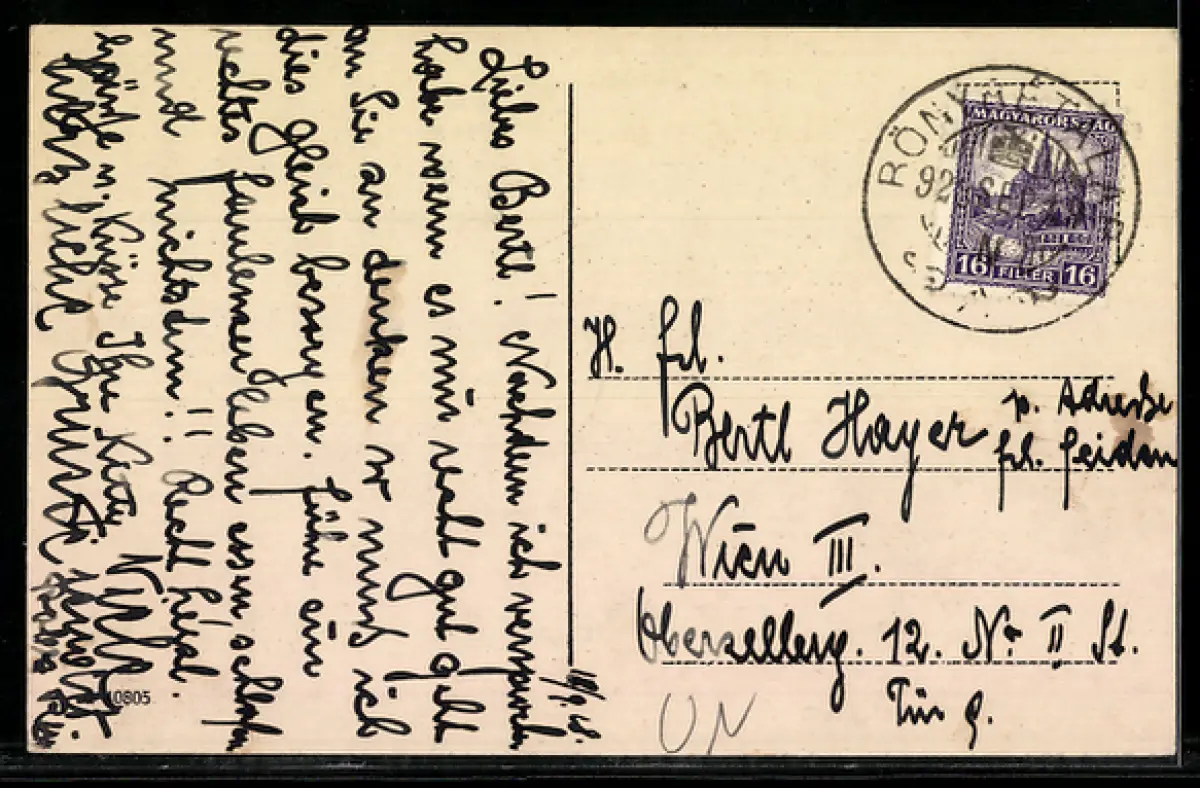 Liebes Bertl! Nachdem ich versprochen
habe wenn es mir recht gut geht
an Sie zu denken so muß ich
dies gleich besorgen. Führe ein
rechtes Faulenzerleben essen, schlafen
und nichtstun!! Recht herzl.
Grüße u. Küsse Ihre Kitty
Herzliche
18/9.28.
10805
MAGYARORSZÁG
16 FILLER 16
H. Frl.
Bertl Hayer
p. Adresse
Frl.
Wien III.
Oberzellerg. 12. Nr II St.
Tür 9.
UN